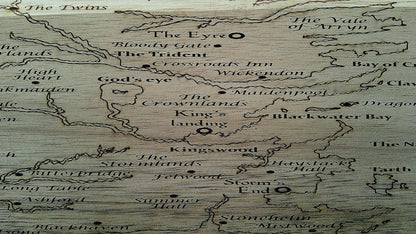 The Twins
The Vale of
Arryn
The Eyre
Bloody Gate
The Trident
Crossroads Inn
Bay of C
rlands
High
Heart
God's eye
Wickendon
Maidenpool
Cla
nkmaiden
The
Crownlands
Drago
King's
landing
Blackwater Bay
Kingswood
The Na
The
Stormlands
Haystack
Hall
Tarth
Bitterbridge
Felwood
Long Table
Storm's
End
Ashford
Summer
Hall
Stonehelm
Mistwood
Blackhaven